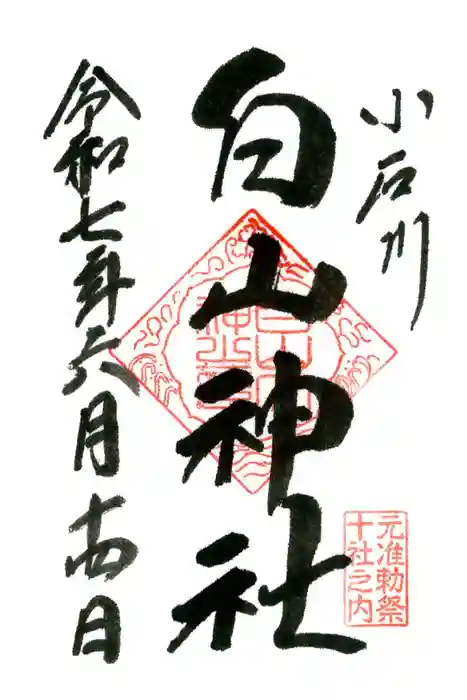 小石川
白山神社
令和七年六月十四日
元准勅祭
十社之内